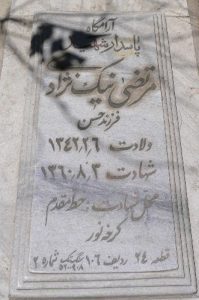 آرامگاه
پاسدار شهید
مرتضی نیک نژاد
فرزند حسن
ولادت ۱۳۴۲٫۲٫۶
شهادت ۱۳۶۰٫۸٫۳
محل شهادت: خط مقدم
کرخه نور
قطعه ۲۴ ردیف ۱۰۶ شماره ۲